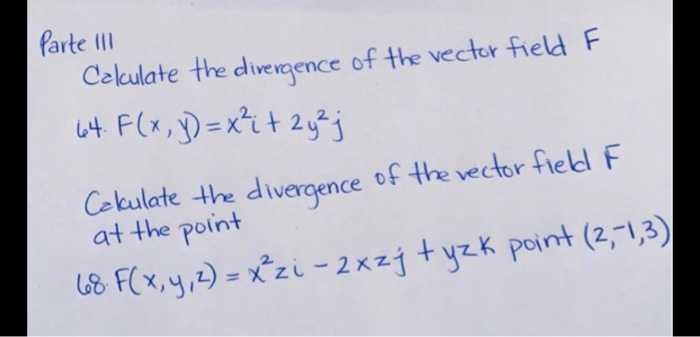 Parte III
Calculate the divergence of the vector field F
64. F(x,y)=x²i+ 2y²j
Calculate the divergence of the vector field F
at the point
68. F(x,y,z) = x²zi - 2xzj + yzk point (2,-1,3)